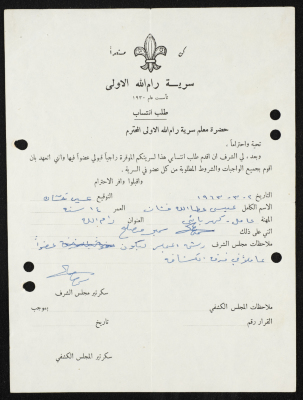 كن مستعداً
سرية رام الله الاولى
تأسست عام ١٩٣٠
طلب انتساب
حضرة معلم سرية رام الله الاولى المحترم
تحية واحتراماً،
وبعد، لي الشرف ان اقدم طلب انتسابي هذا لسريتكم الموقرة راجياً قبولي عضواً فيها واني اتعهد بان
اقوم بجميع الواجبات والشروط المطلوبة من كل عضو في السرية.
واقبلوا وافر الاحترام
التاريخ ٢-٣-١٩٦٣ التوقيع
الاسم الكامل عيسى عطا الله العمر سنة
المهنة عامل العنوان رام الله
اثني على ذلك
ملاحظات مجلس الشرف ليكون عضواً
عاملاً في فرقة الكشافة
سكرتير مجلس الشرف
ملاحظات المجلس الكشفي بموجب
القرار رقم تاريخ
سكرتير المجلس الكشفي